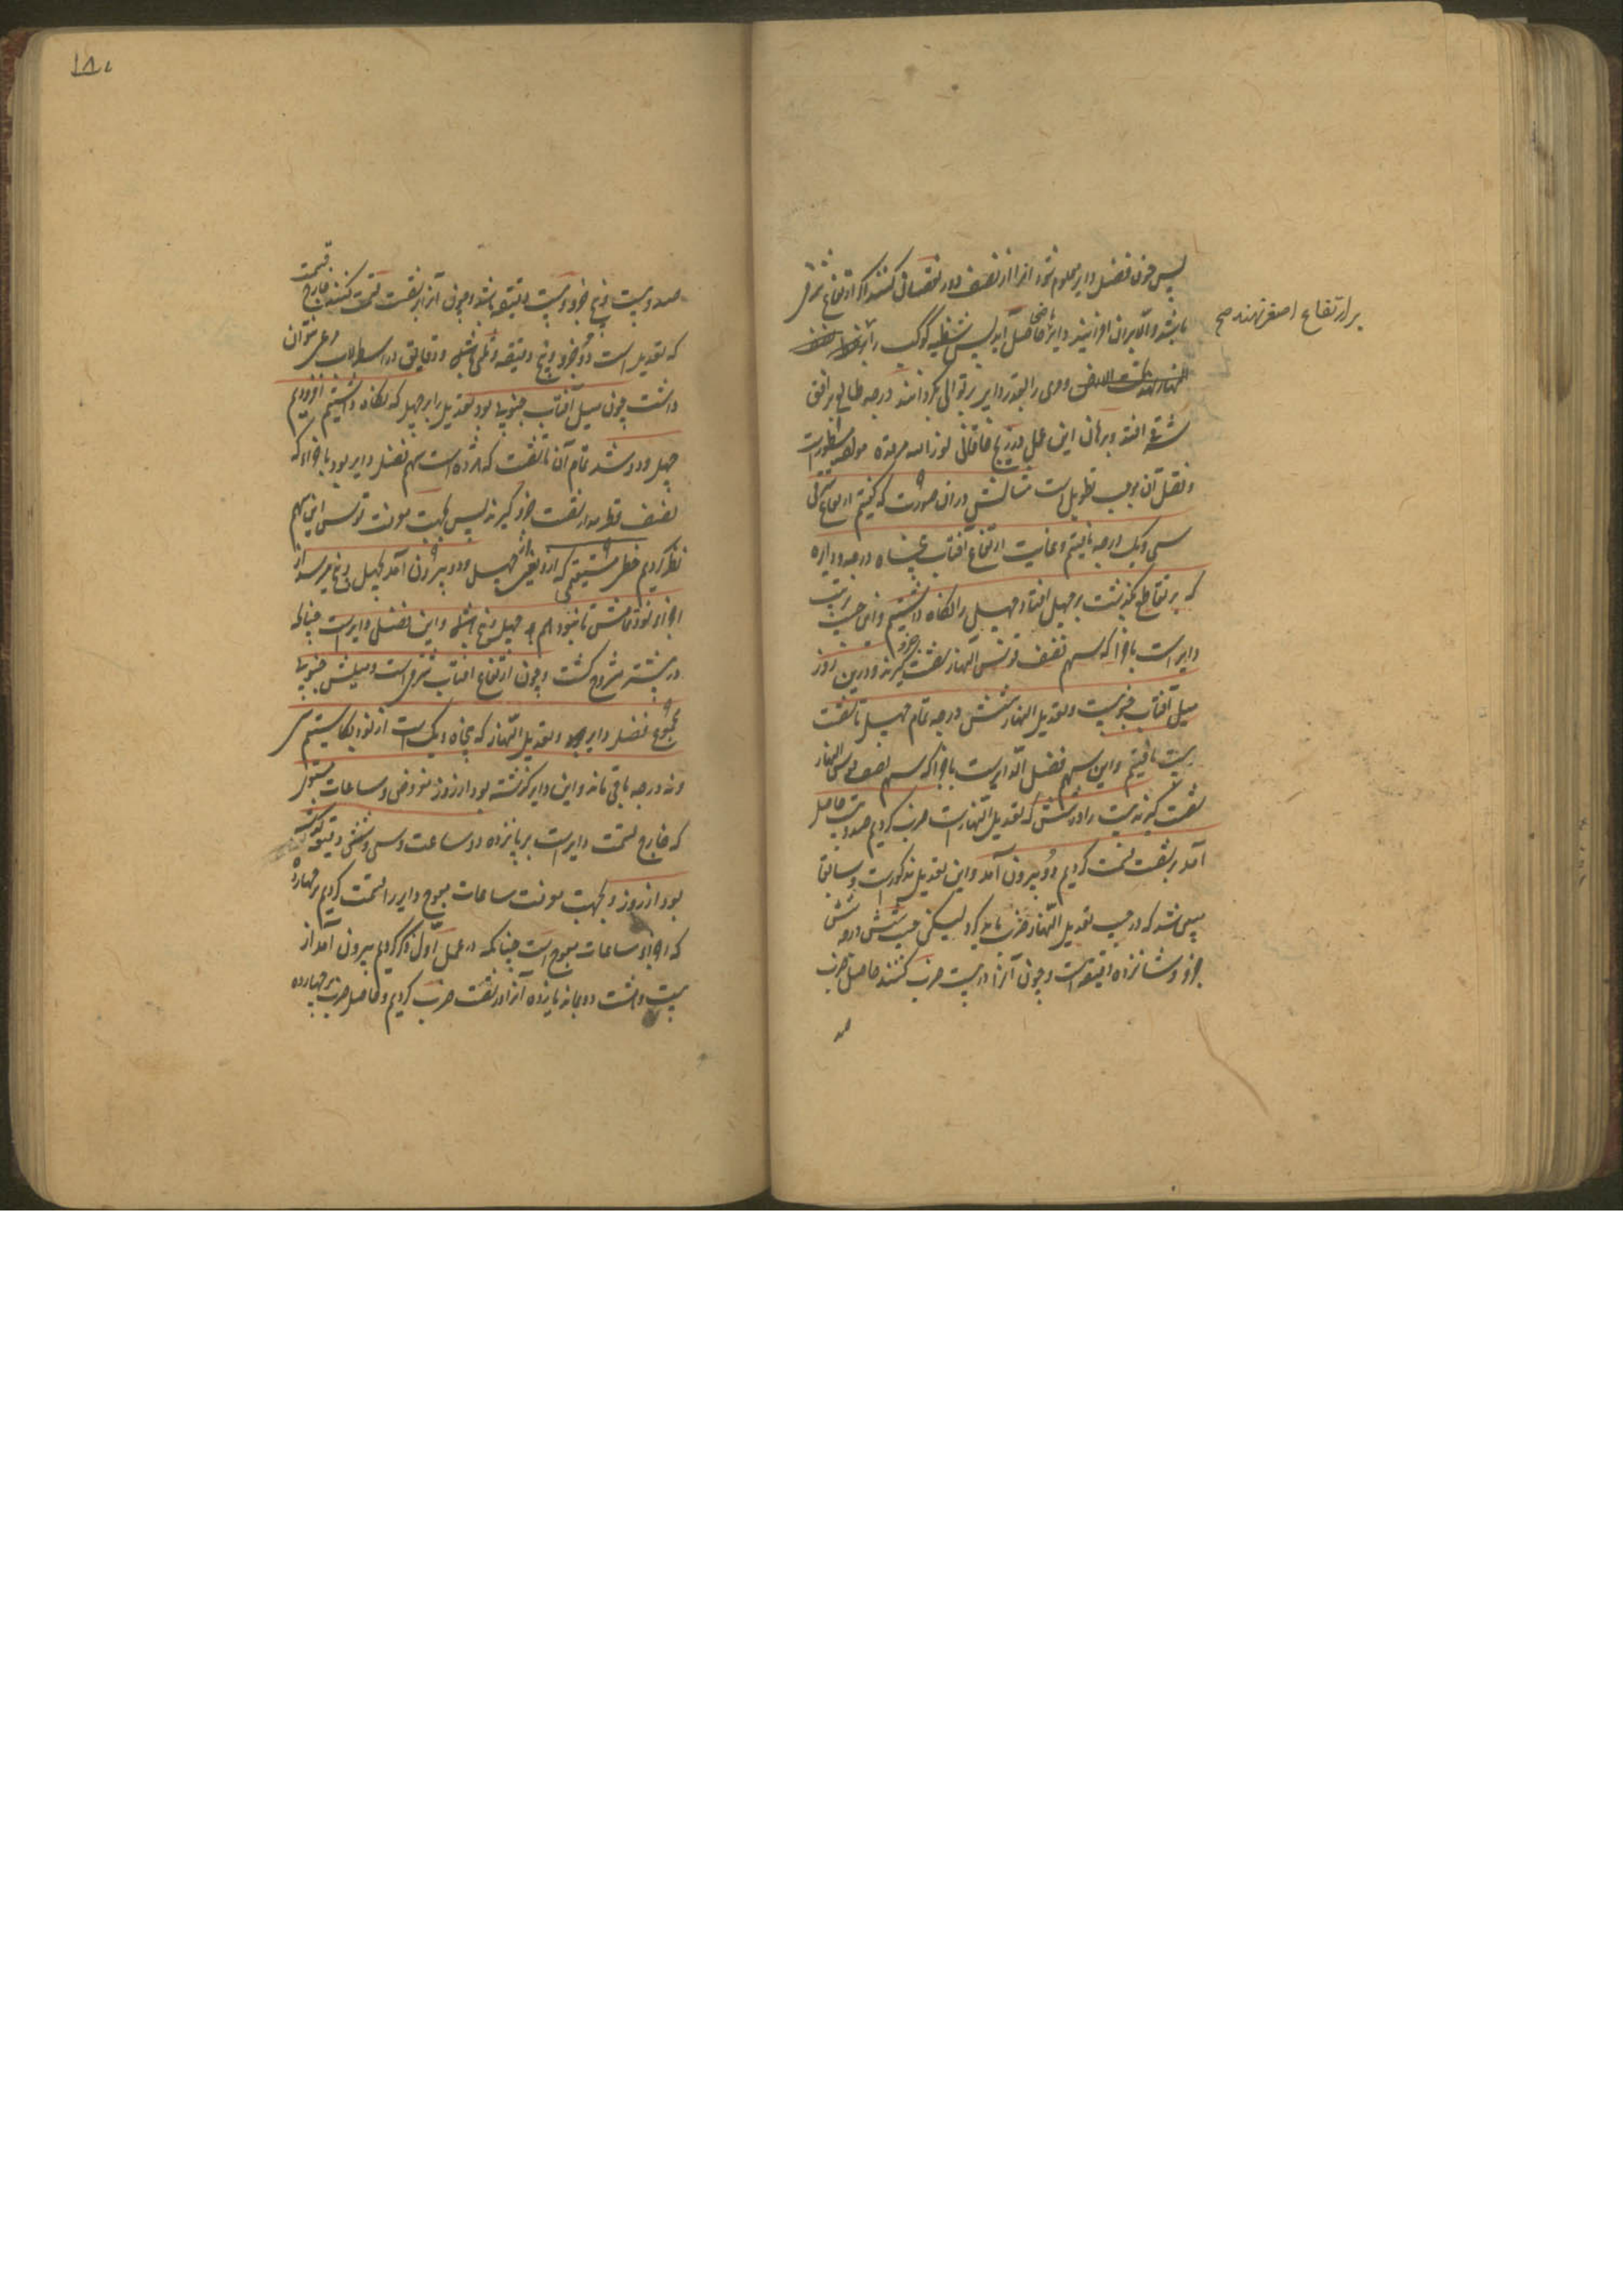 پس چون فضل دایر معلوم شود انرا از نصف دور نقصان کنند اکر ارتفاع شرقی
باشد والا بران افزایند دایر ماضی حاصل آید پس شظیه کوکب را بر
بر ارتفاع اصغر نهند صح
النهار تحت الارض و مری را بقدر دایر بر توالی بکردانند درجه طالع بر افق
شرقی افتد و برهان این عمل در زیج خاقانی نور الله مرقده مولفه مسطور است
و نقل آن موجب تطویل است مثالش در ان صورت که کفتیم ارتفاع شرقی
سی و یک درجه یافتیم و غایت ارتفاع آفتاب پنجاه درجه و دایره
که بر تقاطع بکذشت بر چهل افتاد چهل را نکاه داشتیم و این جیب ترتیب
دایر است باجزا که سهم نصف قوس النهار شصت کیرند و درین روز
میل آفتاب جنوبیست و تعدیل النهار شش درجه تمام چهل تا شصت
بیست یافتیم و این سهم فضل الدایر است باجزا که سهم نصف قوس النهار
شصت کیرند بیست را در شش که تعدیل النهار است ضرب کردیم صد و بیست حاصل
آمد بر شصت قسمت کردیم دو بیرون آمد و این تعدیل مذکور است و سابقا
مبین شد که در جیب تعدیل النهار ضرب باید کرد لیکن جیب شش درجه شش
جزو و شانزده دقیقه است و چون آنرا در بیست ضرب کنند حاصل ضرب
صد
۱۸۰
صد و بیست و پنج جزو و بیست دقیقه باشد و چون آنرا بر شصت قسمت کنند خارج قسمت
که تعدیل است دو جزو و پنج دقیقه و ثلثی باشد و دقایق در اسطرلاب مرعی نتوان
داشت چون میل آفتاب جنوبی بود تعدیل را بر چهل که نکاه داشتیم افزودیم
چهل و دو شد تمام آن تا شصت که هژده است سهم فضل دایر بود باجزاء که
نصف قطر مدار شصت جزو کیرند پس بجهت معرفت قوس این سهم
نظر کردیم خط مستقیمی که از تقاطع چهل و دو بیرون آمد بچهل و پنج میرسد از
اجزاء قوس تمامش تا نود هم چهل و پنج باشد و این فضل دایر است چنانکه
در پیشتر مشروح کشت و چون ارتفاع افتاب شرقی است و میلش جنوبی
مجموع فضل دایر و تعدیل النهار که پنجاه و یک است از نود بکاستیم سی
و نه درجه باقی ماند و این دایر کذشته بود از روز مفروض و ساعات مستوی
که خارج قسمت دایر است بر پانزده دو ساعت و سی و شش دقیقه کذشته
بود از روز و بجهت معرفت ساعات معوج دایر را قسمت کردیم بر چهارده
که اجزاء ساعات معوج است چنانکه در عمل اول ذکر کردیم بیرون آمد از
بیست و هشت دو بماند یازده آنرا در شصت ضرب کردیم و حاصل ضرب بر چهارده